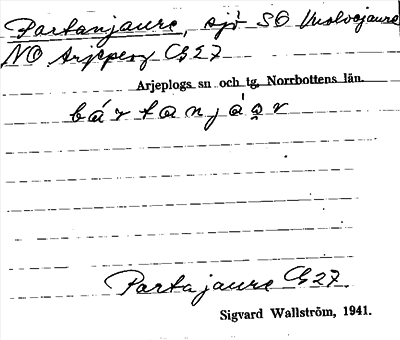 Partanjaure, sjö SO
NO Arjeplog C627
Arjeplogs sn och tg, Norrbottens län.
bártanjáo̭r
Partajaure C627.
Sigvard Wallström, 1941.